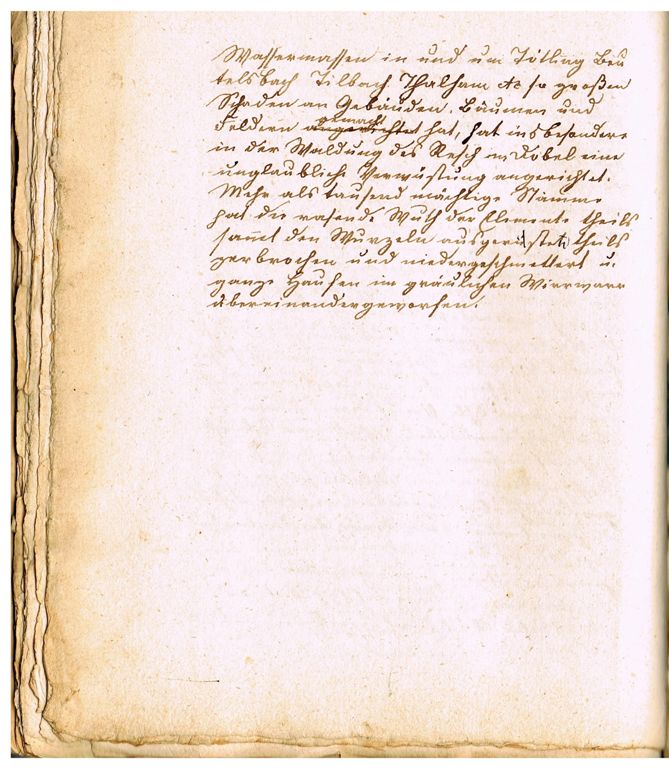 Wassermassen in und um Tötling Beu
telsbach Tilbach Thalham etc so großen
Schaden an Gebäuden, Bäumen und
gemacht
Feldern angerichtet hat, hat insbesondere
in der Waldung des Resch in Dobel eine
unglaubliche Verwüstung angerichtet.
Mehr als tausend mächtige Stämme
hat die rasende Wuth der Elemente theils
sammt den Wurzeln theils
zerbrochen und niedergeschmettert u.
ganze Haufen im gräulichen Wirrwarr
übereinandergeworfen.